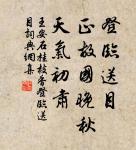 登臨送目
正故國晚秋
天氣初肅
王安石桂枝香登臨送
目詞典網集